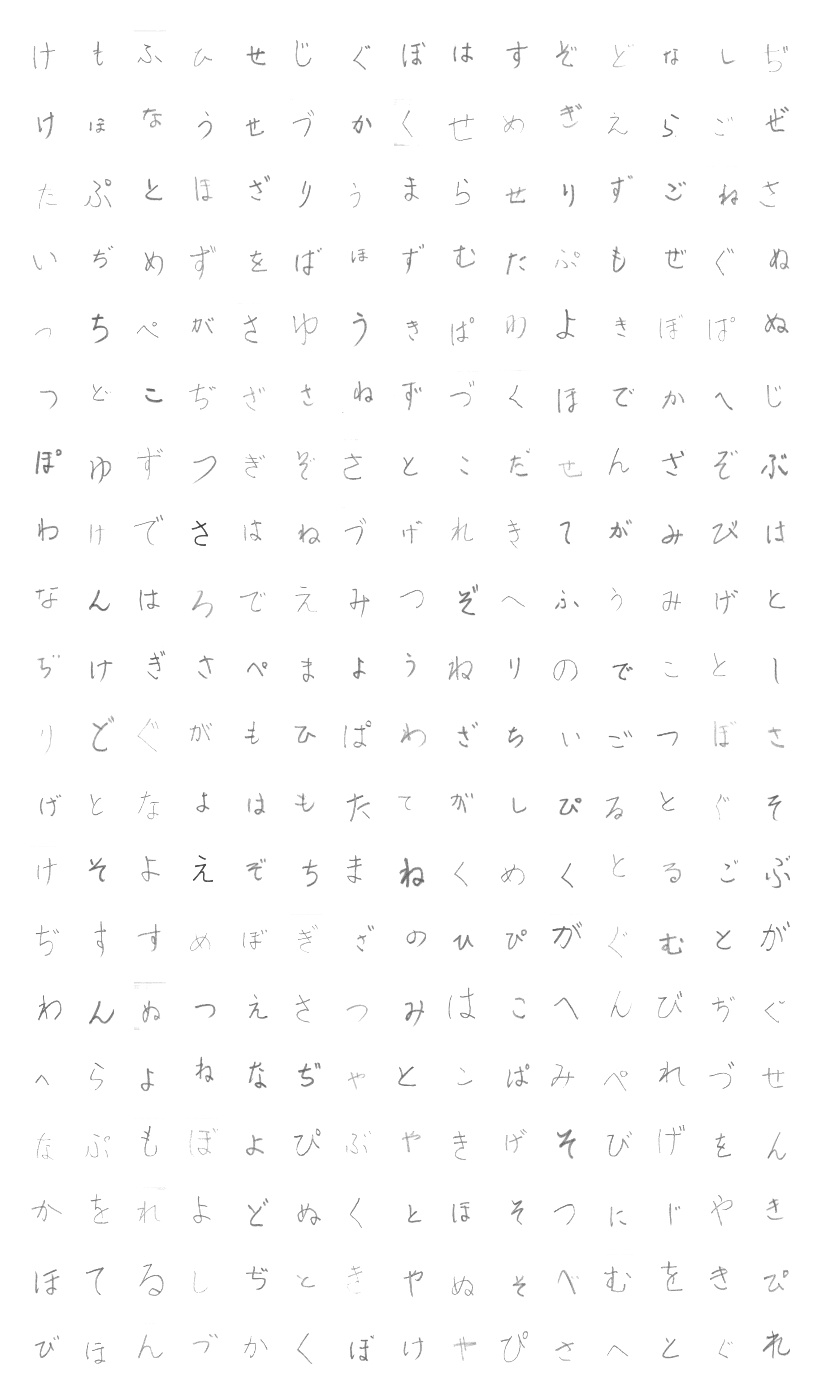 けもふひせじぐぼはすぞどなしぢ
けほなうせづかくせめぎえらごぜ
たぷとほざりうまらせりずごねさ
いぢめずをばほずむたぷもぜぐぬ
っちぺがさゆうきぱゆよきぼぱぬ
つどこぢざさねずづくほでかへじ
ぽゆずつぎぞさとこだせんざぞぶ
わけでさはねづげれきてがみびは
なんはろでえみつぞへふうみげと
ぢけぎさぺまようねりのでことし
りどぐがもひぱわざちいごつぼさ
げとなよはもたてがしぴるとぐそ
けそよえぞちまねくめくとるごぶ
ぢすすめぼぎざのひぴがぐむとが
わんぬつえさつみはこへんびぢぐ
へらよねなぢやとこぱみぺれづせ
なぷもぼよぴぶやきげそびげをん
かをれよどぬくとほそつにじやき
ほてるしぢときやぬそべむをきぴ
びほんづかくぼけやぴさへとぐれ